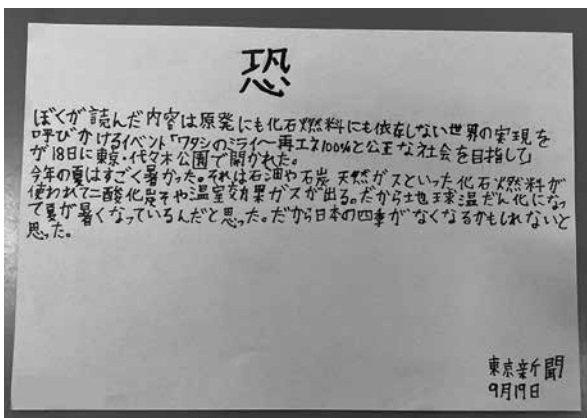 恐
ぼくが読んだ内容は原発にも化石燃料にも依存しない世界の実現を
呼びかけるイベント「ワタシのミライ〜再エネ100%と公正な社会を目指して」
が18日に東京・代々木公園で開かれた。
今年の夏はすごく暑かった。それは石油や石炭 天然ガスといった化石燃料が
使われて二酸化炭そや温室効果ガスが出る。だから地球温だん化になっ
て夏が暑くなっているんだと思った。だから日本の四季がなくなるかもしれないと
思った。
東京新聞
9月19日